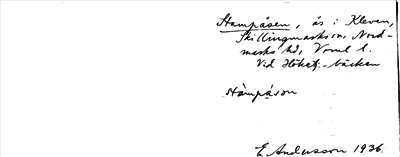 Stampåsen, ås i Kleven,
Skillingmarks sn, Nord-
marks hd, Vrml l.
Vid Hökefj.-bäcken
stàmpå̀sən
E. Andersson 1936.